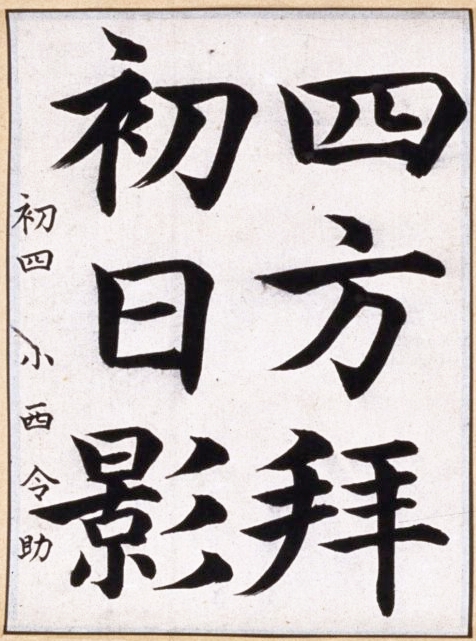 四方拜
初日影
初四 小西令助